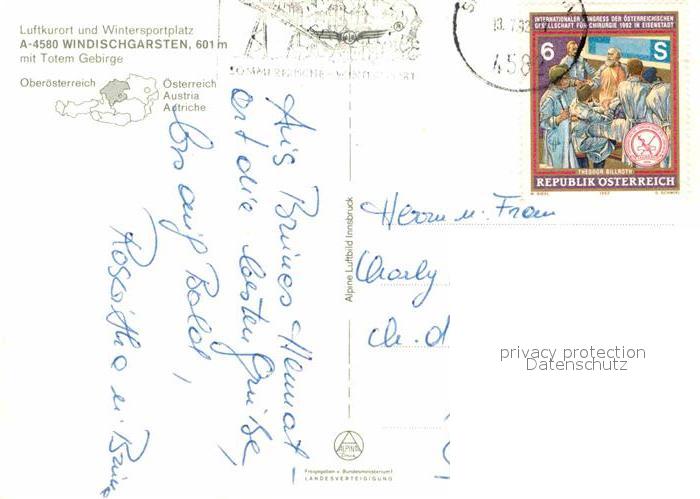 Luftkurort und Wintersportplatz
A-4580 WINDISCHGARSTEN, 601 m
mit Totem Gebirge
Oberösterreich
Österreich
Austria
Autriche
Aus Brunos Heimat-
ort die besten Grüße,
bis auf Bald,
Roswitha u. Bruno
Alpine Luftbild Innsbruck
ALPINE
Freigegeben v. Bundesministerium f.
LANDESVERTEIGIGUNG
13.7.92
458
INTERNATIONALER KONGRESS DER ÖSTERREICHISCHEN
GESELLSCHAFT FÜR CHIRURGIE 1992 IN EISENSTADT
6 S
THEODOR BILLROTH
REPUBLIK ÖSTERREICH
1992
Herrn u. Frau
Charly
privacy protection
Datenschutz